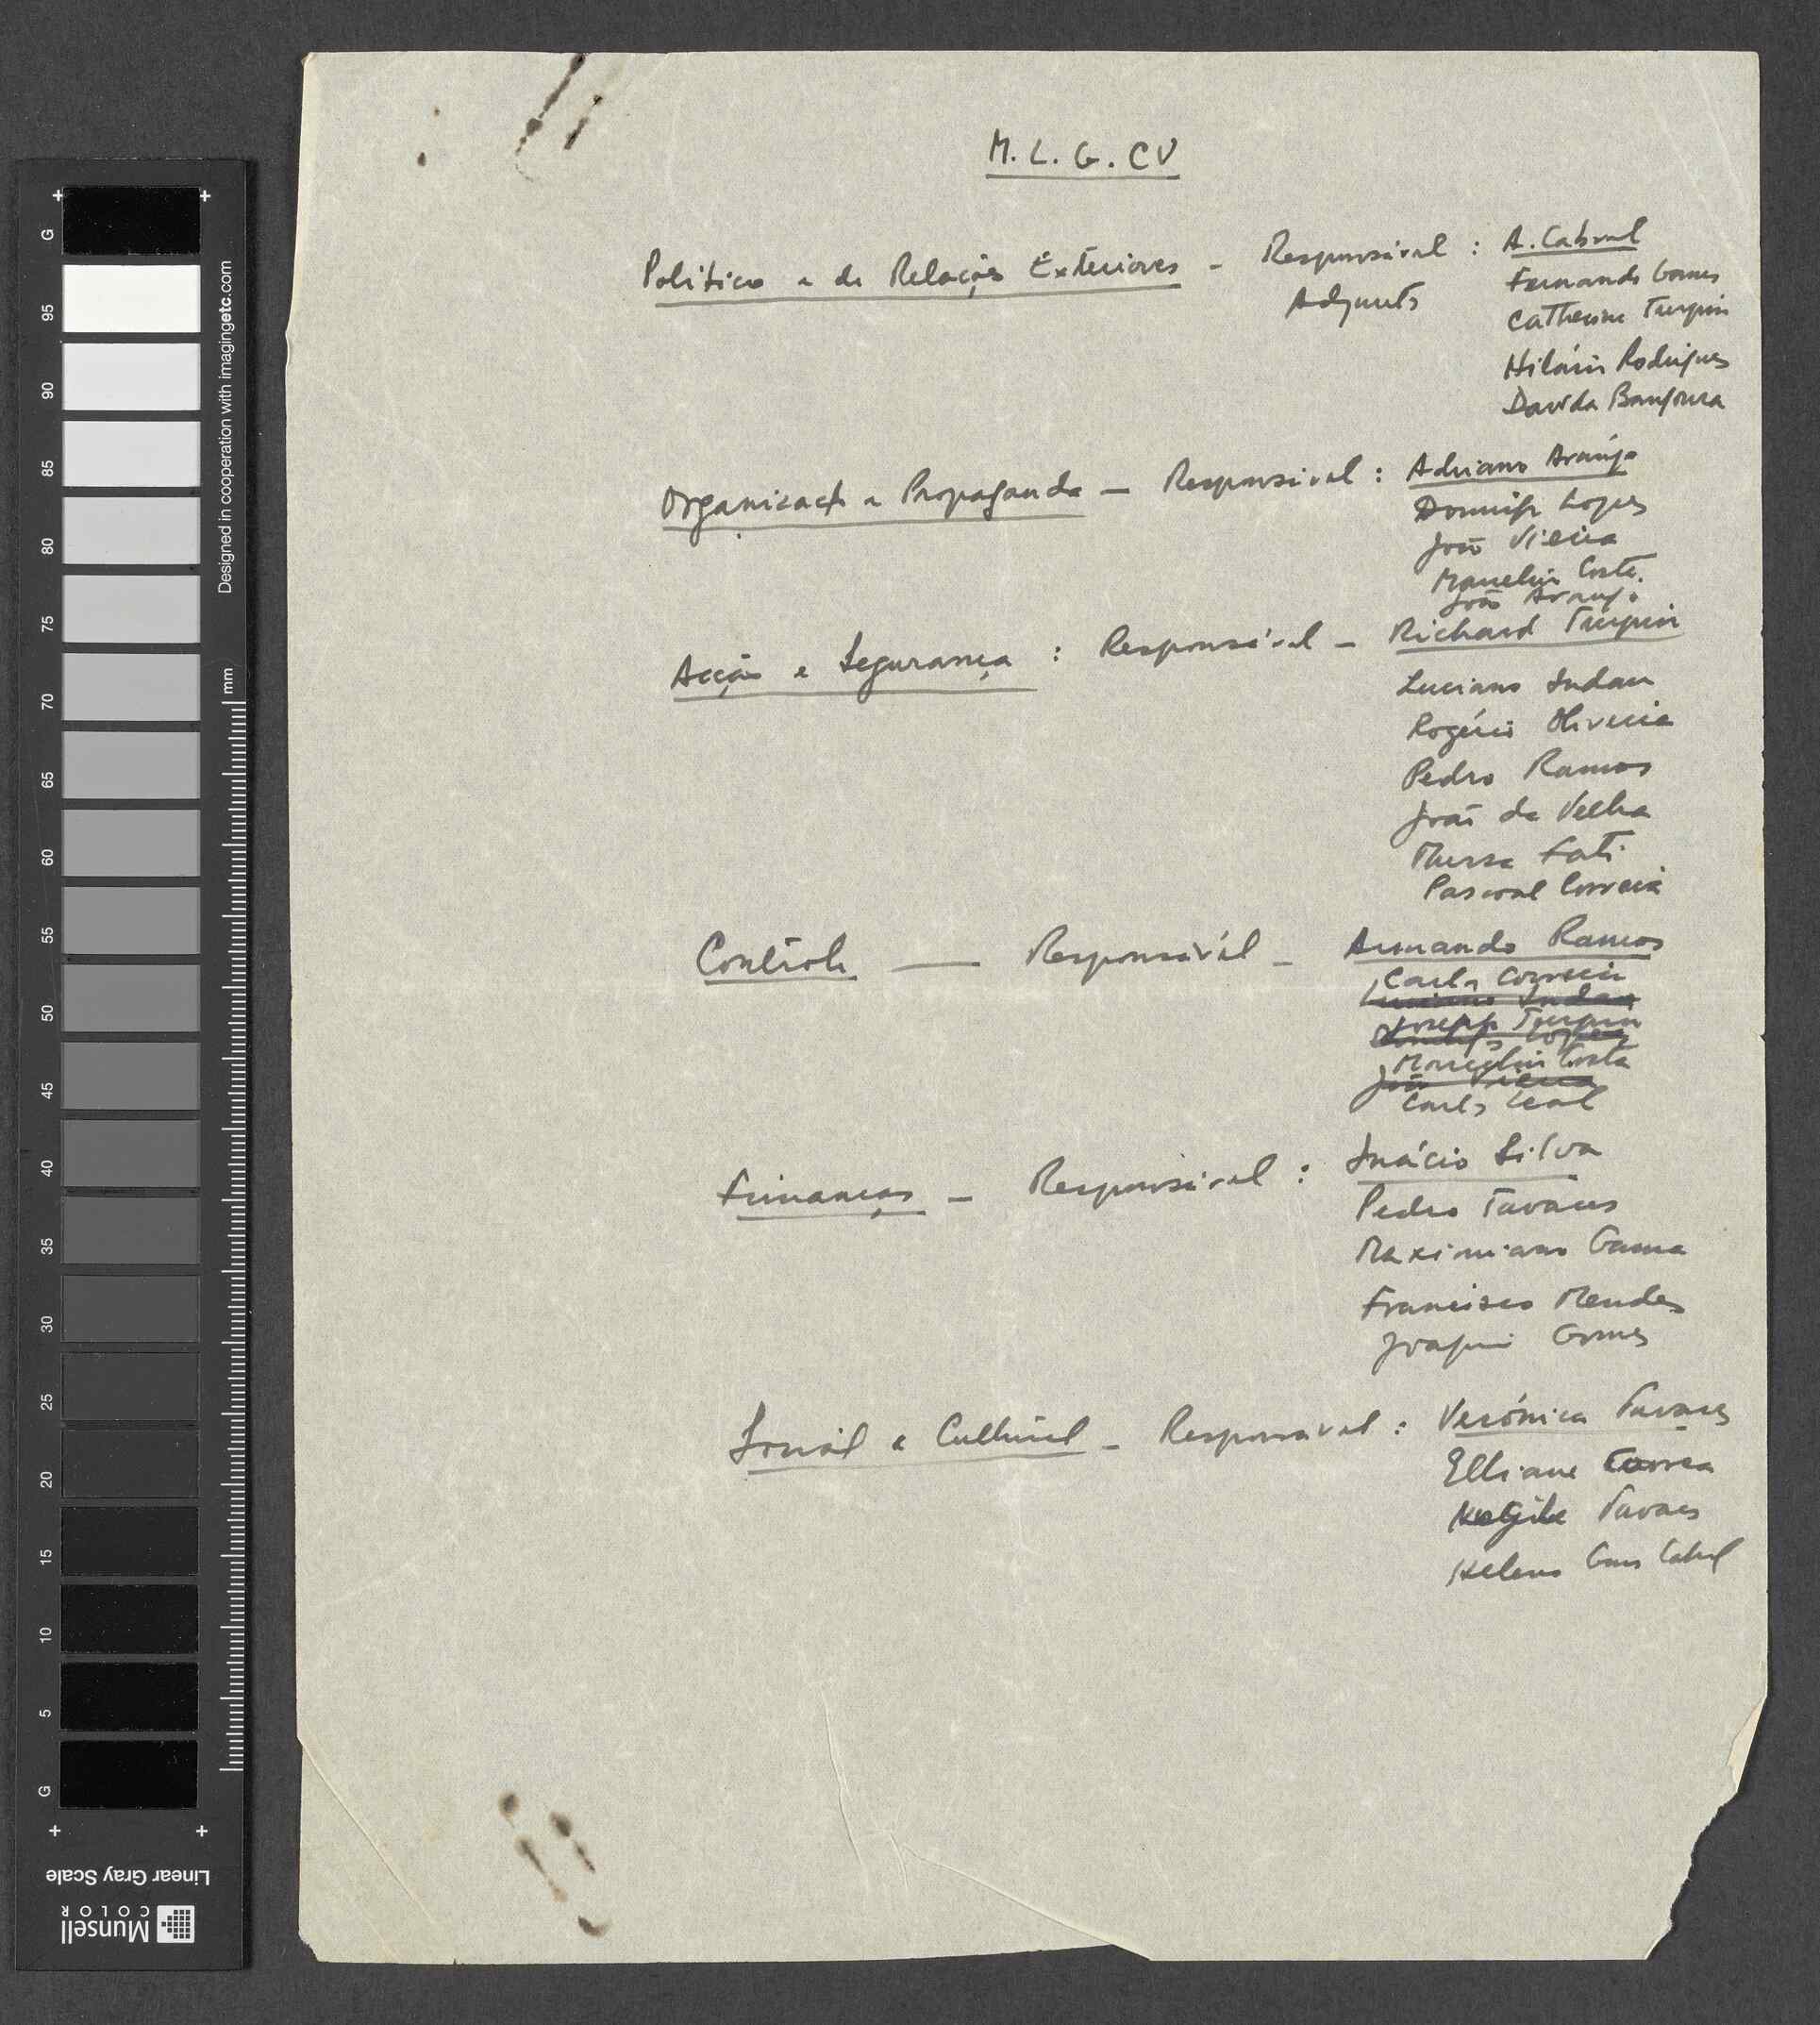 M. L. G. CV
Politico e de Relações Exteriores - Responsável : A. Cabral
Adjuntos Fernando Gomes
Catherine Turpin
Hilário Rodrigues
Davida Bangoura
Organização e Propaganda — Responsável : Adriano Araújo
Domingos Lopes
João Vieira
Marcelino Costa.
João Araujo
Acção e Segurança : Responsável - Richard Turpin
Luciano Indau
Rogério Oliveira
Pedro Ramos
João da Velha
Mussa Fati
Pascoal Correia
Contrôle — Responsável - Armando Ramos
Carlos Correia
Luciano Indau
Joseph Turpin
Domingos Lopes
Marcelino Costa
João Vieira
Carlos Leal
Finanças - Responsável : Inácio Silva
Pedro Tavares
Maximiano Gama
Francisco Mendes
Joaquim Gomes
Social e Cultural - Responsável : Verónica Tavares
Elliane Correa
Tavares
Helena Cabral
G
95
90
85
80
75
70
65
60
55
50
45
40
35
30
25
20
15
10
5
G
mm
Designed in cooperation with imagingetc.com
Linear Gray Scale
Munsell
COLOR